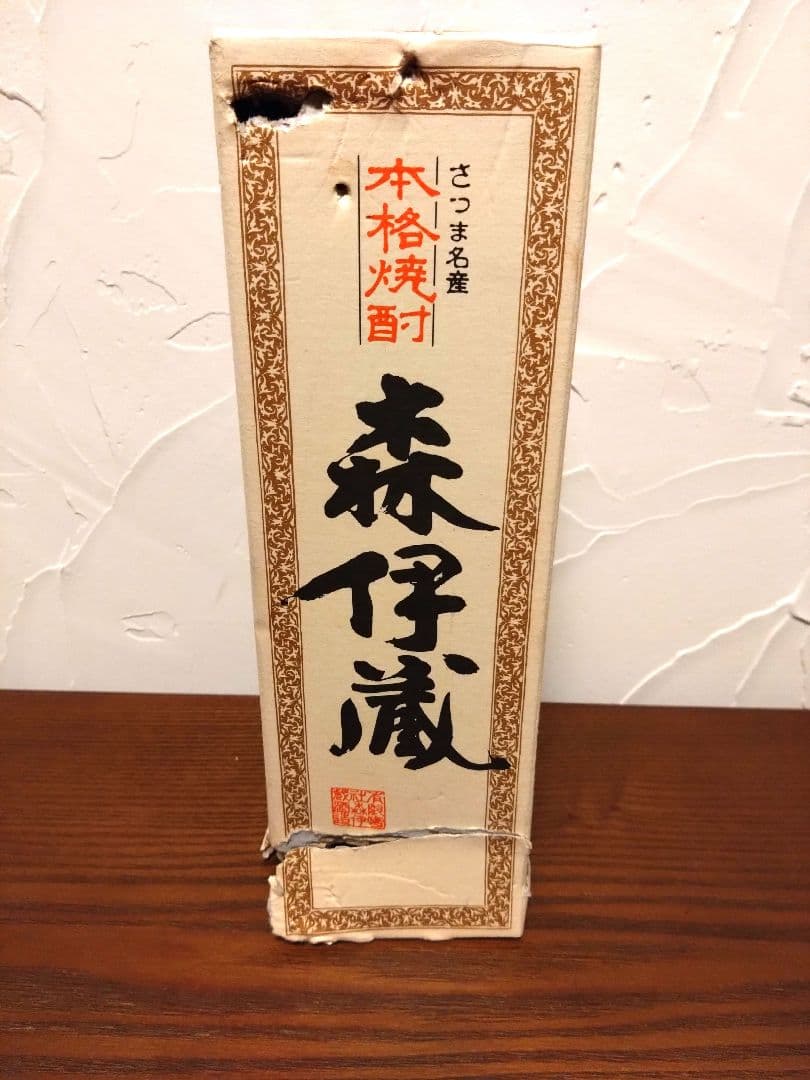 さつま名産
本格焼酎
森伊蔵